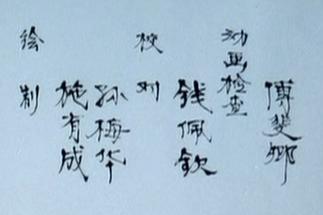 动画检查
傅斐卿
校对
钱佩钦
绘制
孙梅华
施有成